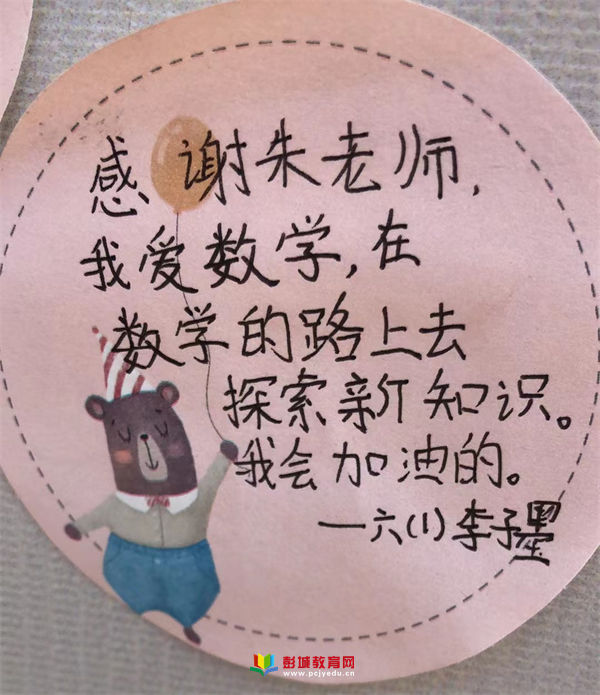 感谢朱老师,
我爱数学,在
数学的路上去
探索新知识。
我会加油的。
—六(1)李子墨
彭城教育网
www.pcjyedu.cn